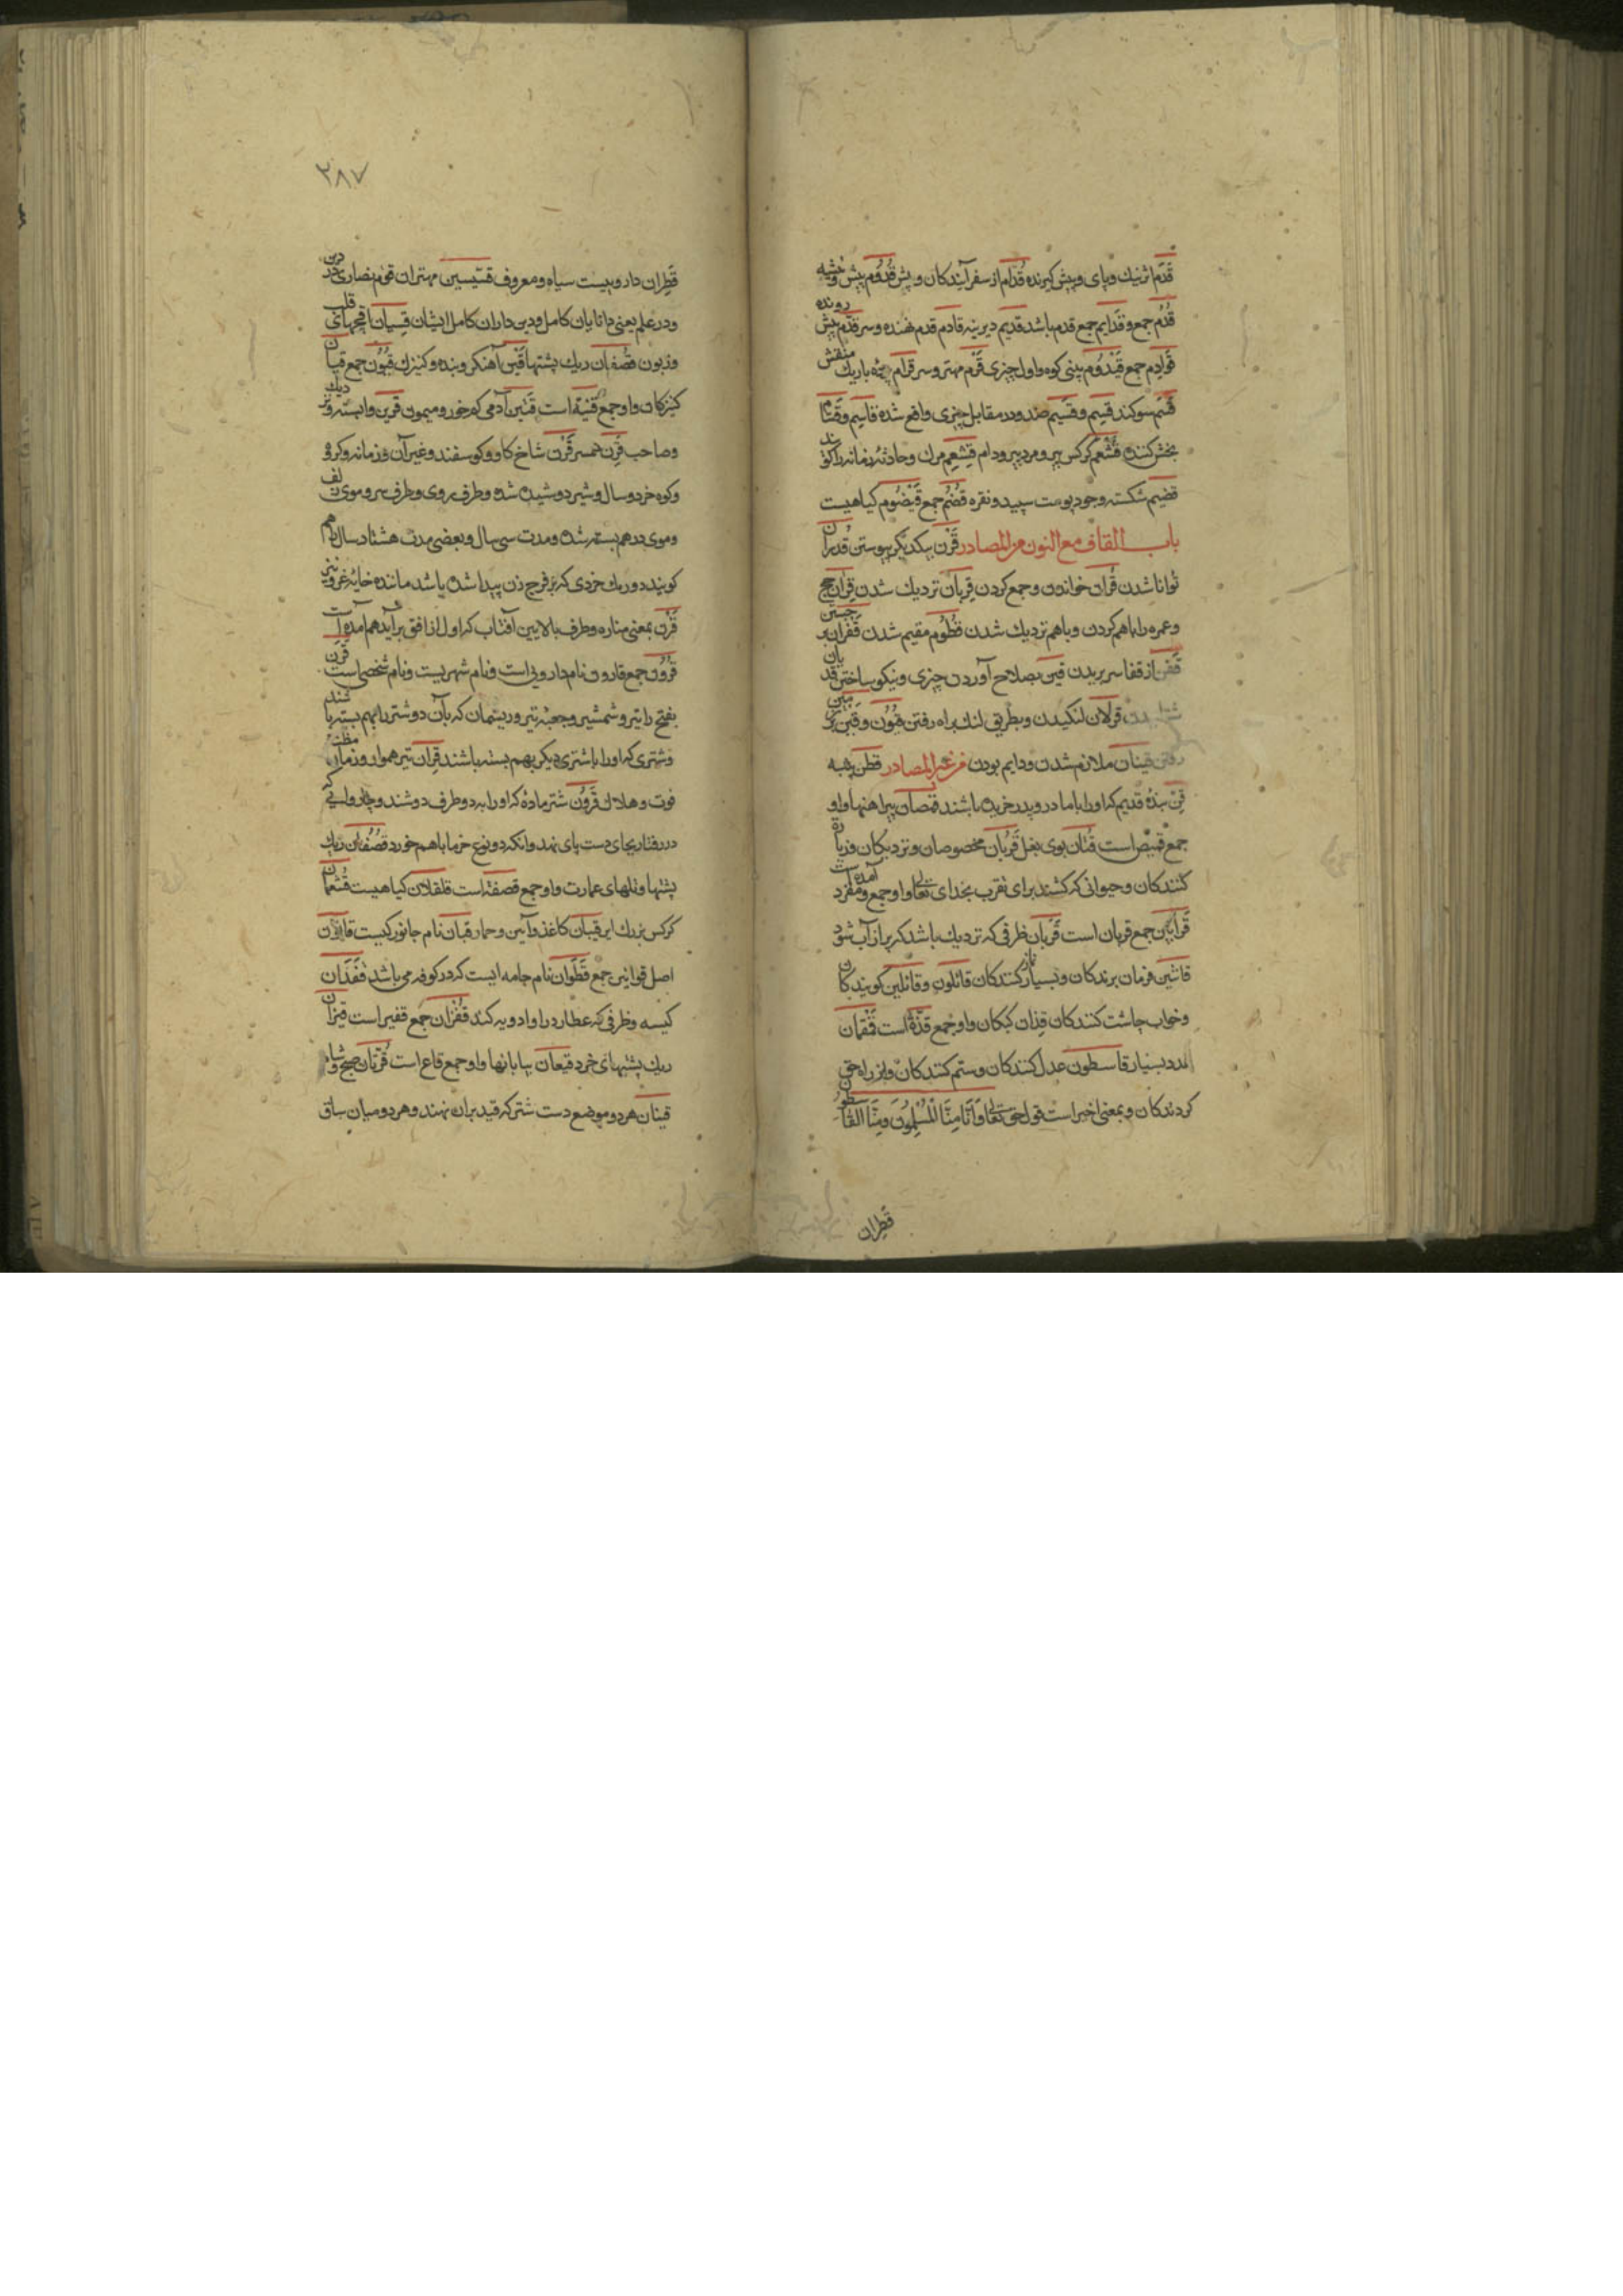 قَدَم اثر نیك و پای و پیش گیرنده قُدّام از سفر آیندکان و پیش قُدُوم پیش و تیشه
قُدُم جمع و قَدایم جمع قدم باشد قدیم دیرینه قادم قدم نهنده و سر قُدُم پیش رونده
قَوادِم جمع قَیْدُوم بینی کوه و اول چیزی قَرْم مهتر و سر قرام پرده باریك منقش
قَسَم سوکند قسِیم و قسیم ضد و در مقابل چیزی واقع شده قاسِم و قَسّام
بخش کننده قَشْعَم کرکس پیر و مرد پیر و دام قِشعِم مرك و حادثه زمانه را کویند
قضیم شکسته و جو و پوست سپید و نقره قُضُم جمع قَیْضُوم کیاهیست
باب القاف مع النون من المصادر قَرْن بیکدیکر پیوستن قدران
توانا شدن قُرآن خواندن و جمع کردن قِربان نزدیك شدن قِران حج
و عمره را باهم کردن و باهم نزدیك شدن قُطُوم مقیم شدن قَفَزان بر جستن
قَفَن از قفا سر بریدن قین بصلاح آوردن چیزی و نیکو ساختن قدیان
قزلان لنکیدن و بطریق لنك براه رفتن قُبُون و قَبْن بر زمین
رفتن قینان ملازم شدن و دایم بودن من غیر المصادر قطن پنبه
قِنّ بندهٔ قدیم که او را با مادر و پدر خریده باشند قمصان پیراهنها و او
جمع قمیص است قُنان بوی بغل قُربان مخصوصان و نزدیکان و زیاره
کنندکان و حیوانی که کشند برای تقرب بخدای تعالی و او جمع و مفرد آمده است
قَرابین جمع قربان است قَربان ظرفی که نزدیك باشد که پر از آب شود
قانتین فرمان برندکان و بسیار نماز کنندکان قائلون و قائلین کویندکان
و خواب چاشت کنندکان قِذان کیکان و او جمع قذّة است قَمْقمان
عدد بسیار قاسطون عدل کنندکان و ستم کنندکان و از راه حق
کردندکان و بمعنی اخیر است قول حق تعالی وَاَنّا مِنَّا الْمُسْلِمُونَ وَمِنَّا الْقاسطون
قَطِران
۳۸۷
قَطِران دارویست سیاه و معروف قسّیسین مهتران قوم نصاری در دین
و در علم یعنی دانایان کامل و دین داران کامل ایشان قِسیان اقچهای قلب
و زبون قُصْفان ریك پشتها قَیْن آهنکر و بنده و کنیزك قُیُون جمع قیان
کنیزکان و او جمع قَینة است قتین آدمی کم خور و میمون قَرین وابسته و نزدیك
و صاحب قِرن همسر قَرْن شاخ کاو و کوسفند و غیر آن و زمانه و کروه
و کوه خرد و سال و شیر دوشیده شده و طرف روی و طرف سر و موی زلف
و موی درهم بسته شده و مدت سی سال و بعضی مدت هشتاد سال را هم
کویند و ریك خردی که بر فرج زن پیدا شده باشد مانند خایهٔ غر
قَرْن بمعنی مناره و طرف بالایین آفتاب که اول از افق برآید هم آمده است
قُرُون جمع قارون نام دارویی است و نام شهریست و نام شخصی است قَرَن
بفتح را تیر و شمشیر و جعبه تیر و ریسمان که بآن دو شتر را بهم بسته باشند
و شتری که او را با شتری دیکر بهم بسته باشند قِران تیر هموار و زمان
فوت و هلاك قَرُون شتر مادهٔ که او را بدو طرف دوشند و چاروایی که
در رفتار بجای دست پای نهد و آنکه دو نوع خرما باهم خورد قُصْفان ریك
پشتها و تلهای عمارت و او جمع قصفة است قلقلان کیاهیست قُشعمان
کرکس بزرك این قبان کاغذ و آیین و حمار قبان نام جانورکیست قانون
اصل قوانین جمع قَطَوان نام جامه ایست که در کوفه می باشد قَفَدان
کیسه و ظرفی که عطار در او ادویه کند قُفْزان جمع قفیز است قیزان
ریك پشتهای خرد قیعان بیابانها و او جمع قاع است قَرّتان صبح و شام
قینان هر دو موضع دست شتر که قید بران نهند و هر دو میان ساق